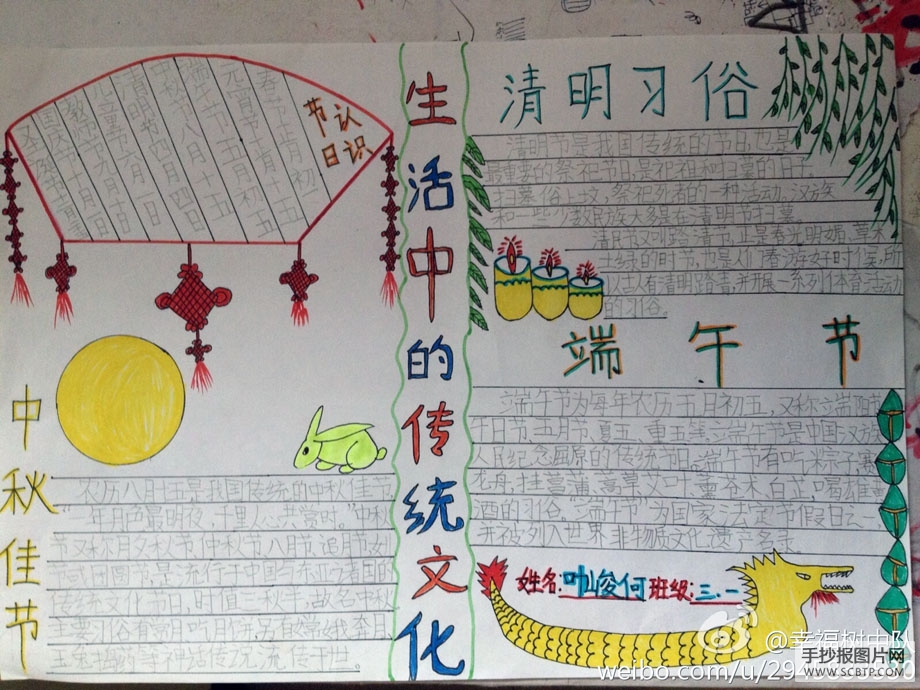 节认
日识
春节正月初一
元宵节正月十五
端午节五月初五
中秋节八月十五
清明节四月
儿童节六月一日
教
国庆
生活中的传统文化
清明习俗
清明节是我国传统的节日,也是
最重要的祭祀节日,是祀祖和扫墓的日子。
扫墓俗上坟,祭祀死者的一种活动。汉族
和一些少数民族大多是在清明节扫墓。
清明节又叫踏青节,正是春光明媚,草木
吐绿的时节,也是人们春游好时候,所
以古人有清明踏青,并开展一系列体育活动
的习俗。
端午节
端午节为每年农历五月初五,又称端阳节
午日节、五月节、夏五、重五等。端午节是中国汉族
人民纪念屈原的传统节日。端午节有吃粽子,赛
龙舟,挂菖蒲、蒿草、艾叶,薰苍术、白芷,喝雄黄
酒的习俗。"端午节"为国家法定节假日之一,
并被列入世界非物质文化遗产名录
姓名:叶峻何 班级:三.一
中秋佳节
农历八月十五是我国传统的中秋佳节
一年月色最明夜,千里人心共赏时。"中秋
节又称月夕、秋节、仲秋节、八月节、追月节
团圆节,是流行于中国
传统文化节日,时值三秋之半,故名
主要习俗有赏月、吃月饼,
玉兔捣药等神话传之流传千世。
@幸福树中队
weibo.com/u/29
手抄报图片网
WWW.SCBTP.COM